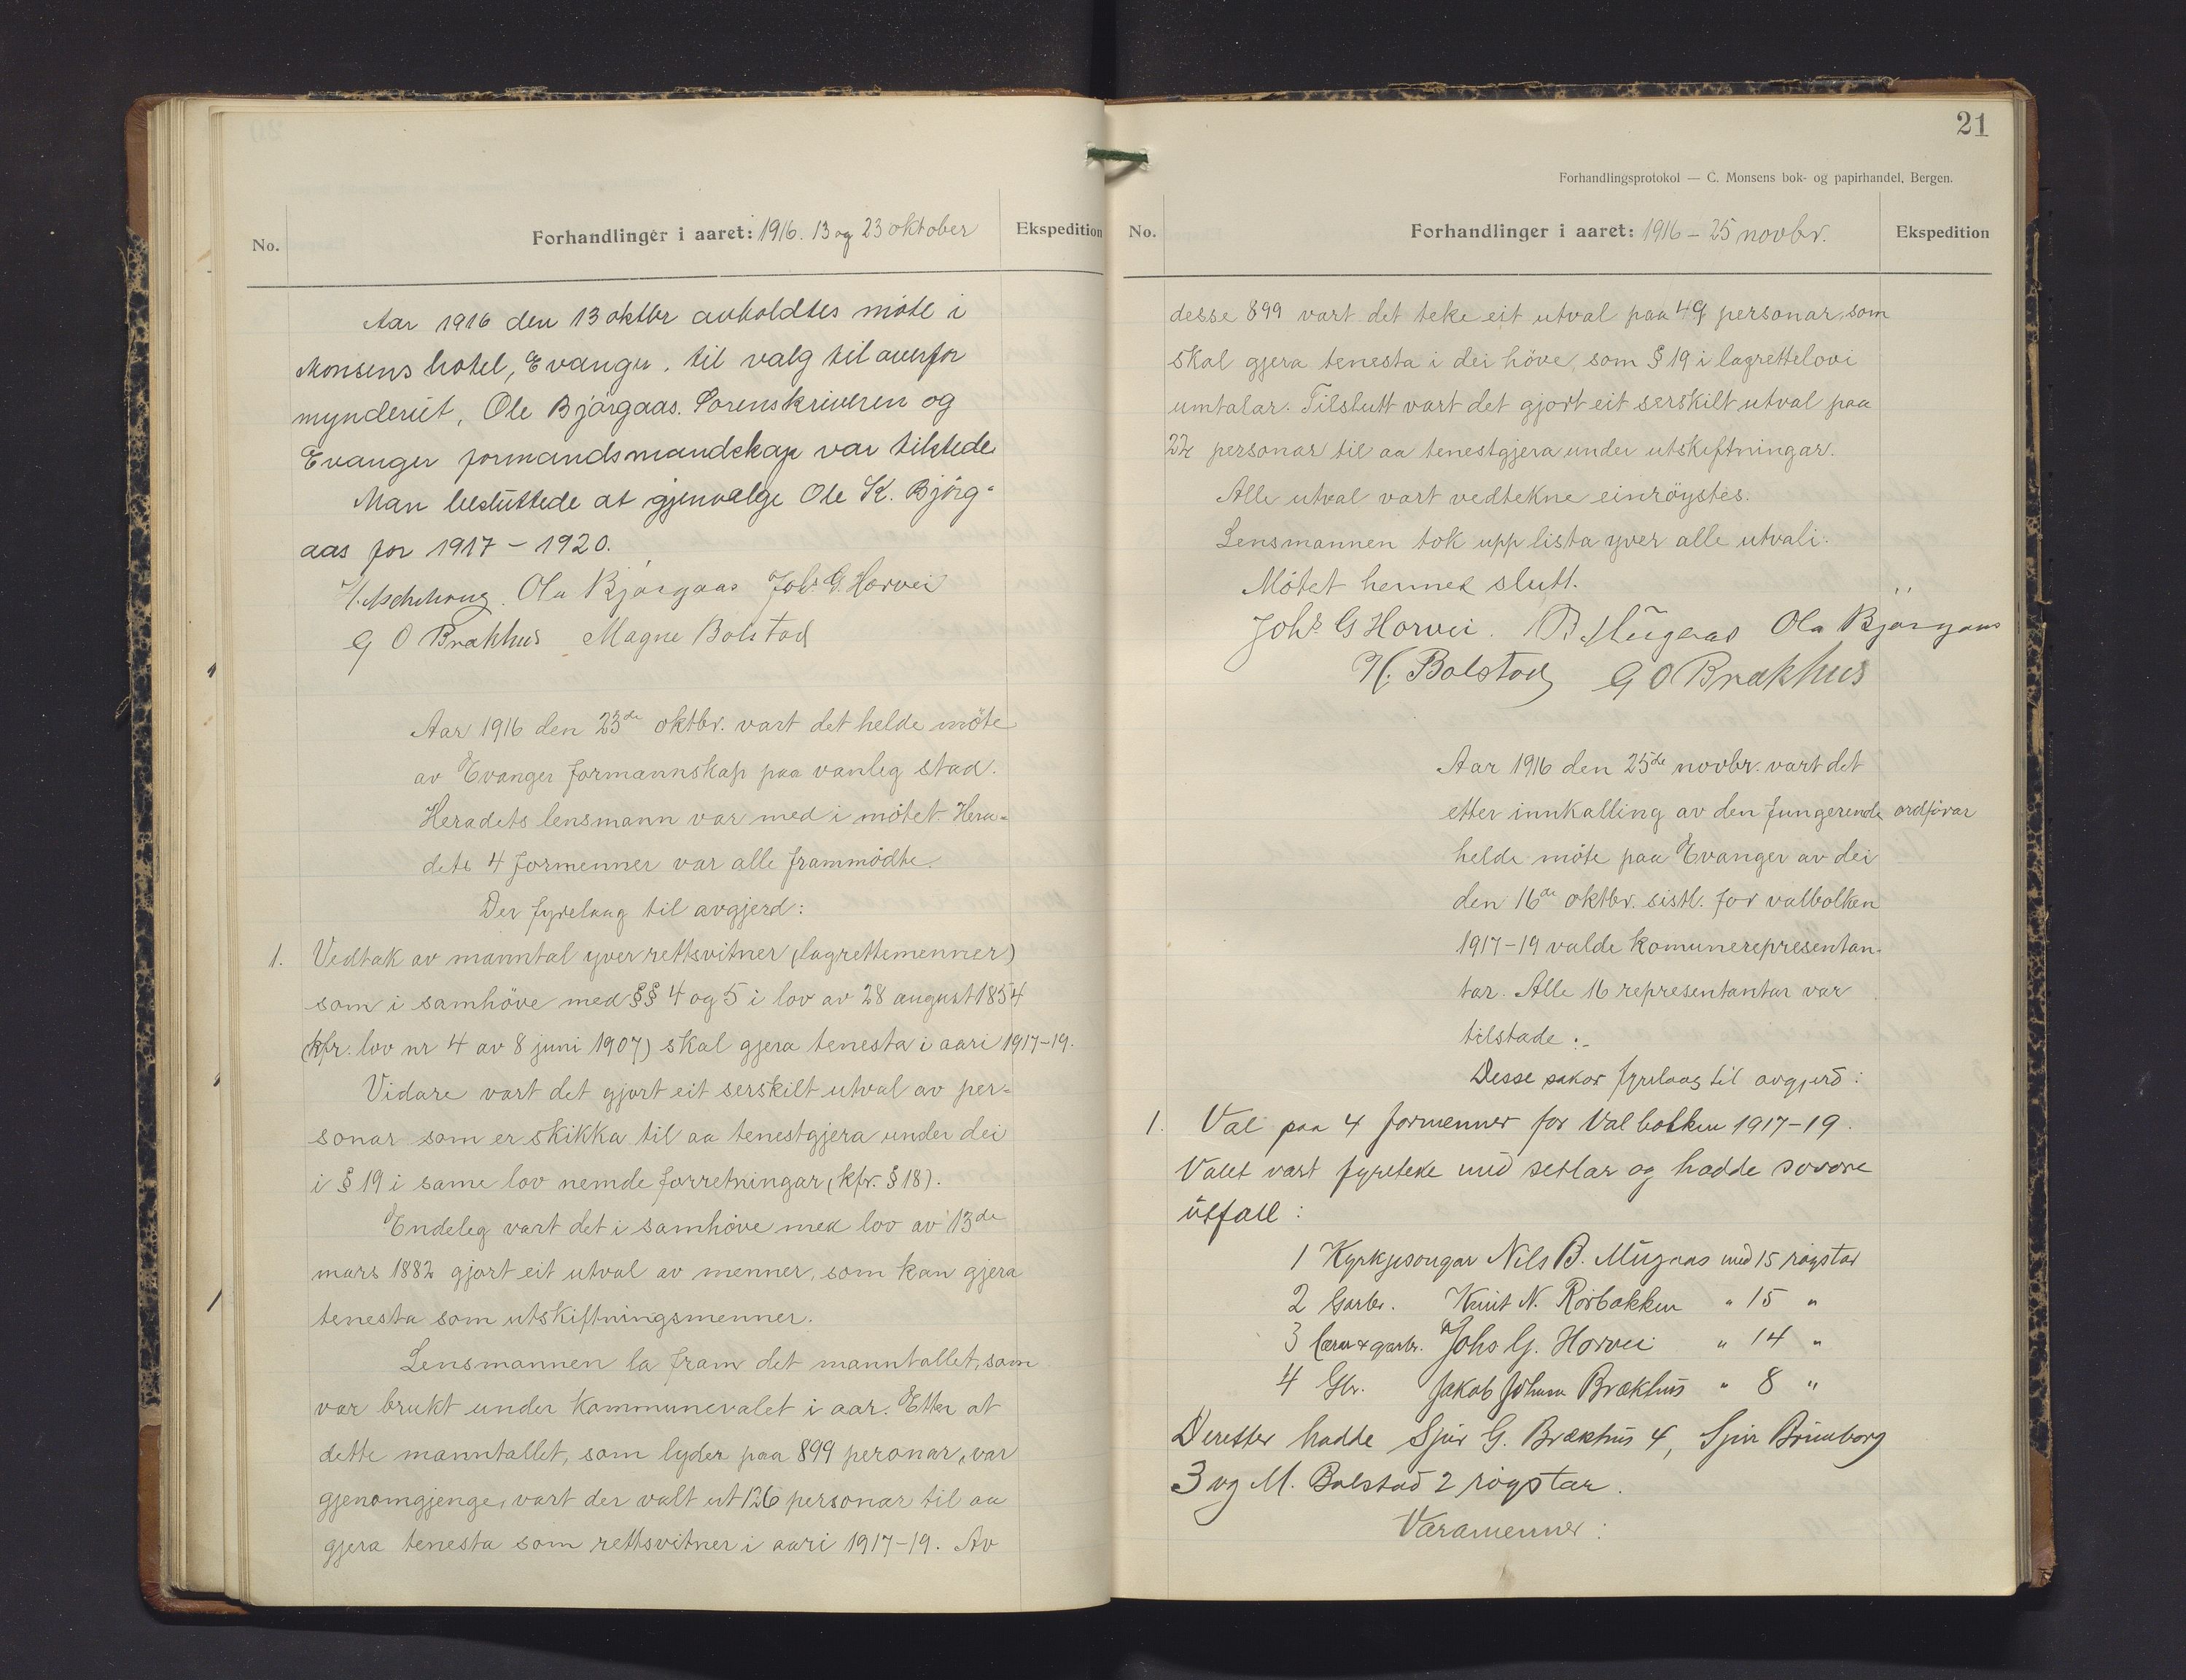 No.
Forhandlinger i aaret: 1916. 13 og 23 oktober
Ekspedition
Aar 1916 den 13 oktbr avholdtes møte i
Monsens hotel, Evanger, til valg til overfor
mynderiet, Ole Bjørgaas. Sorenskriveren og
Evanger formandsmandskap var tilstede
Man besluttede at gjenvælge Ole K. Bjørg-
aas for 1917 - 1920.
Ola Bjørgaas Johs G. Horvei
G O Brækhus Magne Bolstad
Aar 1916 den 23de oktbr. vart det helde møte
av Evanger formannskap paa vanleg stad.
Heradets lensmann var med i møtet. Hera-
dets 4 formenner var alle frammødte.
Der fyrelaag til avgjerd:
1. Vedtak av manntal yver rettsvitner (lagrettemenner)
som i samhøve med §§ 4 og 5 i lov av 28 august 1854
(kfr. lov nr 4 av 8 juni 1907) skal gjera tenesta i aari 1917-19.
Vidare vart det gjort eit serskilt utval av per-
sonar som er skikka til aa tenestgjera under dei
i § 19 i same lov nemde forretningar (kfr. § 18).
Endeleg vart det i samhøve med lov av 13de
mars 1882 gjort eit utval av menner, som kan gjera
tenesta som utskiftningsmenner.
Lensmannen la fram det manntallet, som
var brukt under kommunevalet i aar. Etter at
dette manntallet, som lyder paa 899 peronar, var
gjenomgjenge, vart der valt ut 126 personar til aa
gjera tenesta som rettsvitner i aari 1917-19. Av
21
Forhandlingsprotokol — C. Monsens bok- og papirhandel, Bergen.
No.
Forhandlinger i aaret: 1916 - 25 novbr.
Ekspedition
desse 899 vart det teke eit utval paa 49 personar, som
skal gjera tenesta i dei høve, som § 19 i lagrettelovi
umtalar. Tilslutt vart det gjort eit serskilt utval paa
22 personar til aa tenestgjera under utskiftningar.
Alle utval vart vedtekne einrøystes.
Lensmannen tok upp lista yver alle utvali.
Møtet hermed slutt.
Johs G Horvei. B Mügaas Ola Bjørgaas
M. Bolstad G O Brækhus
Aar 1916 den 25de novbr. vart det
etter innkalling av den fungerende ordførar
helde møte paa Evanger av dei
den 16de oktbr. sistl. for valbolken
1917-19 valde komunerepresentan-
tar. Alle 16 representantar var
tilstade:-
Desse sakor fyrelaag til avgjerd:
1. Val paa 4 formenner for Valbolken 1917-19.
Valet vart fyreteke med setlar og hadde sovore
utfall:
1 Kyrkjesongar Nils B. Mügaas med 15 røystar
2 Garbr. Knut N. Rørbakken " 15 "
3 Lærar & garbr. Johs. G. Horvei " 14 "
4 Gbr. Jakob Johan Brækhus " 8 "
Deretter hadde Sjur G. Brækhus 4, Sjur Brunborg
3 og M. Bolstad 2 røystar.
Varamenner: